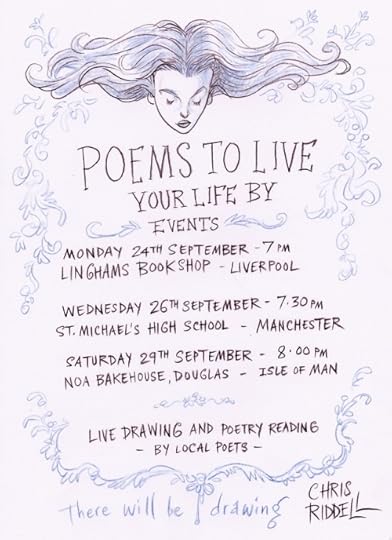 POEMS TO LIVE
YOUR LIFE BY
EVENTS
MONDAY 24TH SEPTEMBER - 7 PM
LINGHAMS BOOKSHOP - LIVERPOOL
WEDNESDAY 26TH SEPTEMBER - 7.30 PM
ST. MICHAEL'S HIGH SCHOOL - MANCHESTER
SATURDAY 29TH SEPTEMBER - 8.00 PM
NOA BAKEHOUSE, DOUGLAS - ISLE OF MAN
LIVE DRAWING AND POETRY READING
- BY LOCAL POETS -
There will be drawing
CHRIS
RIDDELL